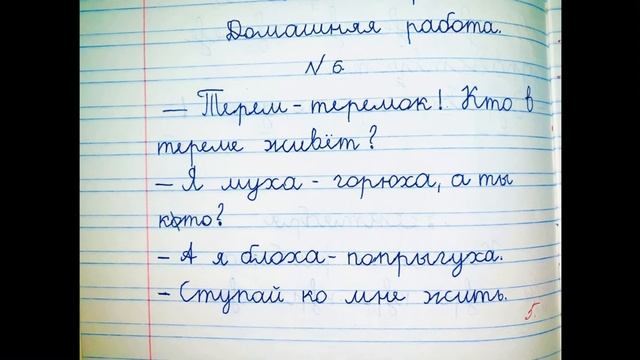 Домашняя работа.
N 6
— Терем - теремок! Кто в
тереме живёт?
- Я муха - горюха, а ты
кто?
- А я блоха - попрыгуха.
- Ступай ко мне жить.
5.